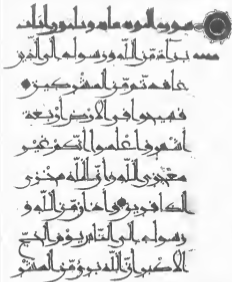 سورة التوبة
براءة من الله ورسوله إلى الذين
عاهدتم من المشركين
فسيحوا في الأرض أربعة
أشهر واعلموا أنكم غير
معجزي الله وأن الله مخزي
الكافرين وأذان من الله و
رسوله إلى الناس يوم الحج
الأكبر أن الله بريء من المشر